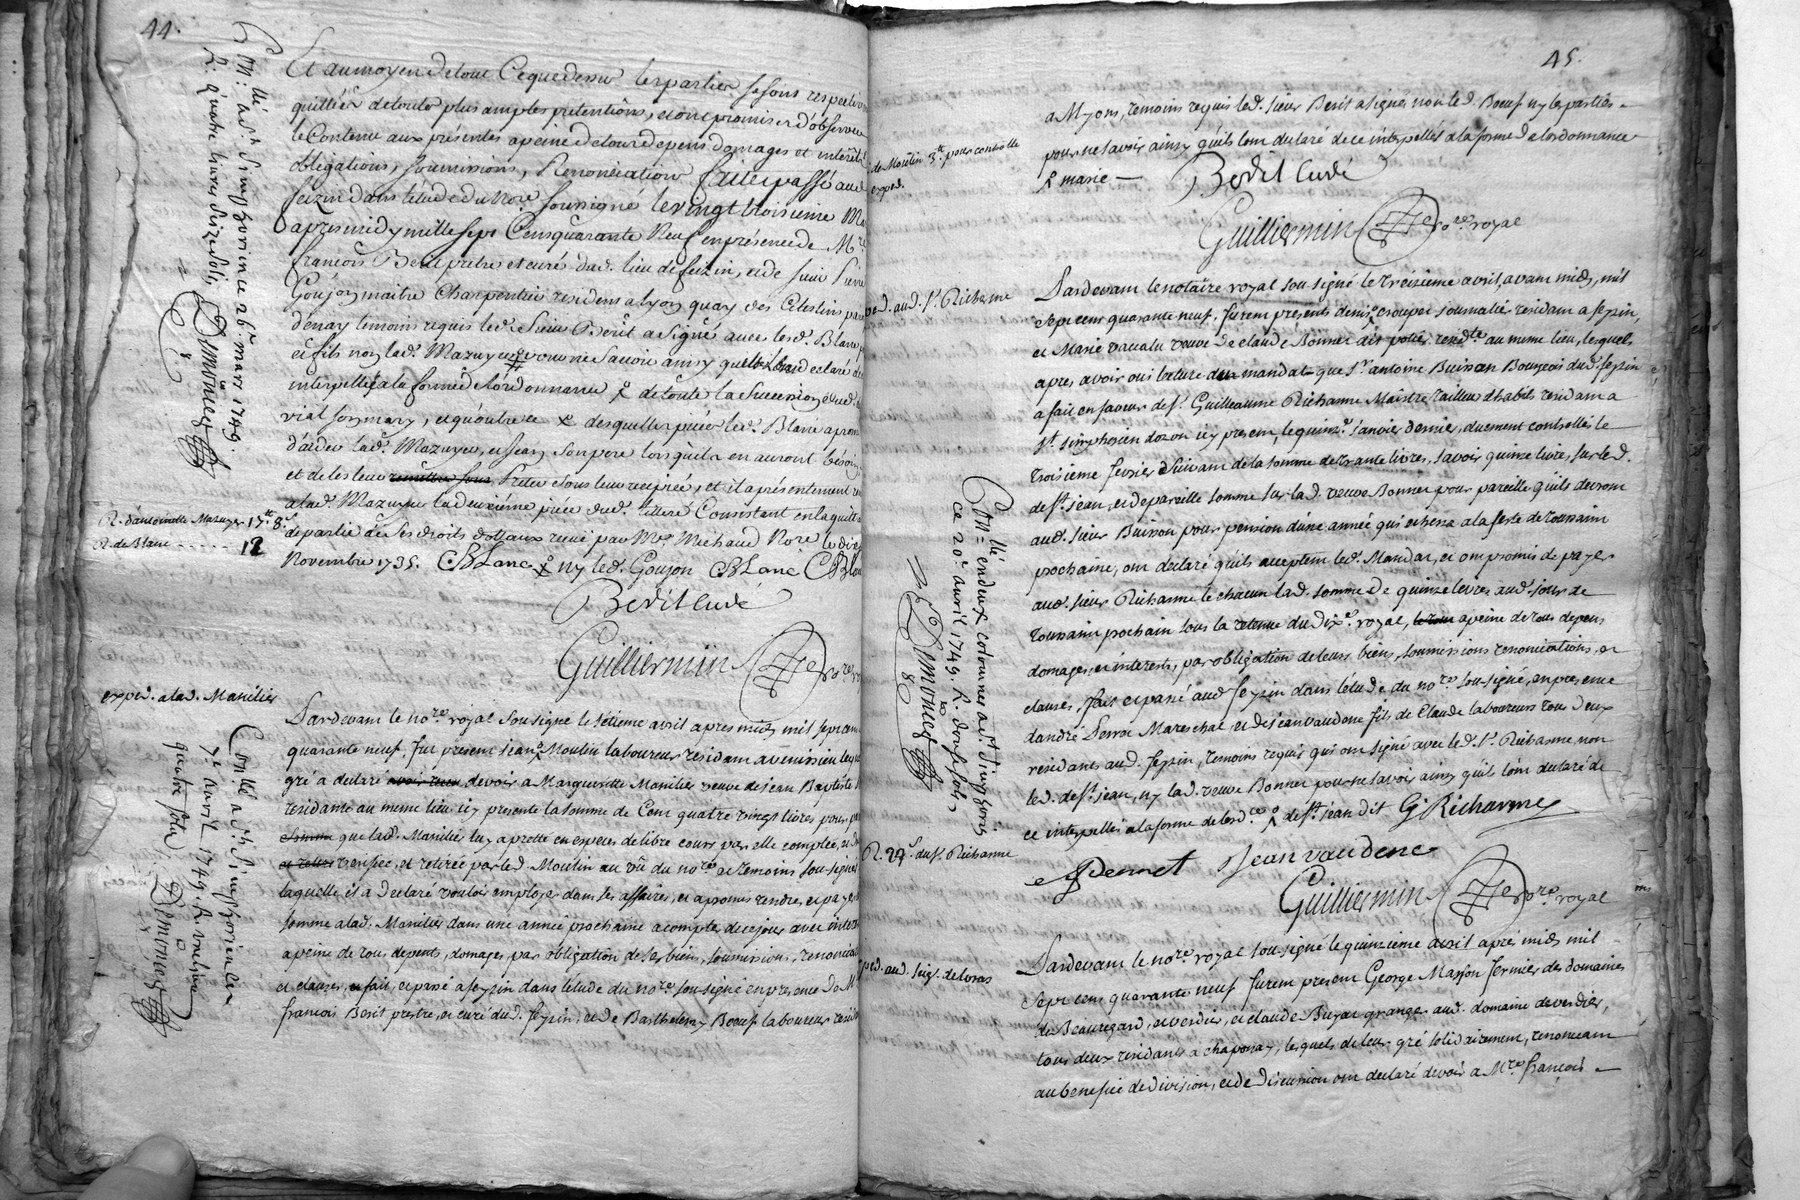 44.
Et au moyen de tout ce que dessus les parties se sont respectivem
quittées de toutes plus amples prétentions, et ont promis et d'observer
le Contenu aux présentes a peine de tous depens domages et intérêts
obligations, soumissions, Renonciations faitet passé aud
feizin dans l'étude du Nore soussigné le vingt troisieme Mars
apres midy mille sept Cens quarante Neuf en présence de Mre
françois Berit pretre et curé dud. lieu de feizin, et de sieur Pierre
Goujon maitre Charpentier résident a lyon quay des Celestins par
d'enay temoins requis led. Sieur Berit a signé avec lesd. Blanc p
et fils non led. Mazuyer pour ne Savoir ainsy qu'elle a déclaré de
interpellée a la forme de lordonnance de toute la succession dud.
vial son mary, et qu'outre ce desquelles pièces led. Blanc a prom
d'aider lad. Mazuyer, et jean son pere lorsqu'ils en auront bésoin
et de les leur remettre sous Preter sous leur recipicé, et il a présentement re
a lad. Mazuyer la deuxiéme piéce dud. tiltre Consistant en la quitta
de partie de ses droits dottaux reçué par Me Michaud Nore le dix
Novembre 1735. CBLanc ny led. Goujon CBLanc CBlan
Berit Curé
Guilliermin Nore ro
Conllé a st Simphorien ce 26e mars 1749.
R. quatre livres seize sols,
Demonces
R. d'antoinette Mazuyer 17tt 8s
R. de Blanc ..... 12
exped. a lad. Manilier
Pardevant le nore royal soussigné le sétieme avril apres midy mil sept cent
quarante neuf. fut présent jean Moulin laboureur residant a venissieu leq
gré a declaré avoir receu devoir a Marguerite Manilier veuve de jean Baptiste
residante au meme lieu icy presente la somme de Cent quatre vingt livres pour p
somme que lad. Manilier luy a prette en especes de libre cours par elle comptée, et d
et retirée versée, et retirée par led. Moulin au vû du nore et temoins soussignés
laquelle il a declaré vouloir employer dans ses affaires, et a promis rendre, et payer
somme a lad. Manilier dans une année prochaine a compter de ce jour avec interet
a peine de tous depents, domages, par obligation de ses biens, soumissions, renonciat
et clauses, fait, et passé a feyzin dans l'étude du nore soussigné en presence de M
francois Berit prestre, et curé dud. feyzin, et de Barthelemy Boeuf laboureur resid
Conllé a st Simphorien le
7e avril 1749. R. vingt
quatre sols,
Demonces
45.
a Myons, temoins requis led. sieur Berit a signé, non led. Boeuf ny les parties
pour ne savoir ainsy qu'ils l'ont declaré de ce interpellés a la forme de lordonnance
marie — Berit Curé
Guilliermin Nore royal
de Moulin 3tt pour controlle
exped.
exped. aud. sr. Richarme
Pardevant le notaire royal soussigné le treizieme avril, avant midy, mil
sept cent quarante neuf. furent présents denis croupet journalier residant a feyzin,
et Marie vacalu veuve de claude Bonner dit potié. rendte au meme lieu, lesquels
apres avoir oui lecture du mandat que sr. antoine Buisson Bourgeois dud. feyzin
a fait en faveur de sr. Guilleaume Richarme Maistre tailleur d'habits residant a
st. simphorien dozon icy present, le quinze janvier dernier, duement controllés le
troisieme fevrier suivant de la somme de trante livres, savoir quinze livres sur led.
de st. jean, et de pareille somme sur lad. veuve Bonner pour pareille qu'ils devront
aud. sieur Buisson pour pension d'une année qui echerra a la feste de toussaint
prochaine, ont declaré qu'ils acceptent led. Mandat, et ont promis de payer
aud. sieur Richarme le chacun lad. somme de quinze livres aud. jour de
toussaint prochain sous la retenue du dixe. royal, a peine de tous depens
domages, et interests, par obligation de leurs biens, soumissions renonciations, et
clauses, fait et passé aud. feyzin dans l'étude du nore soussigné, en presence
dandré Perrot Marechal et de jean vaudene fils de Claude laboureurs tous deux
residants aud. feyzin, temoins requis qui ont signé avec led. sr. Richarme non
led. de st. jean, ny lad. veuve Bonner pour ne savoir ainsy qu'ils l'ont declaré de
ce interpellés a la forme de lordce de st. jean dit G Richarme
jean vaudene
Guilliermin Nore royal
Conllé en deux colonnes a st Simphorien
ce 20e avril 1749. R. douze sols,
Demonces
R. 24s. du sr. Richarme
exped. aud. seigr. de loras
Pardevant le nore royal soussigné le quinzieme avril apres midy mil
sept cens quarante neuf furent presents George Masson fermier des domaines
de Beauregard, et verdier, et claude Buyat granger aud. domaine de verdier,
tous deux residants a chaponay, lesquels de leur gré solidairement, renonceant
au benefice de division, et de discussion ont declaré devoir a Mre françois